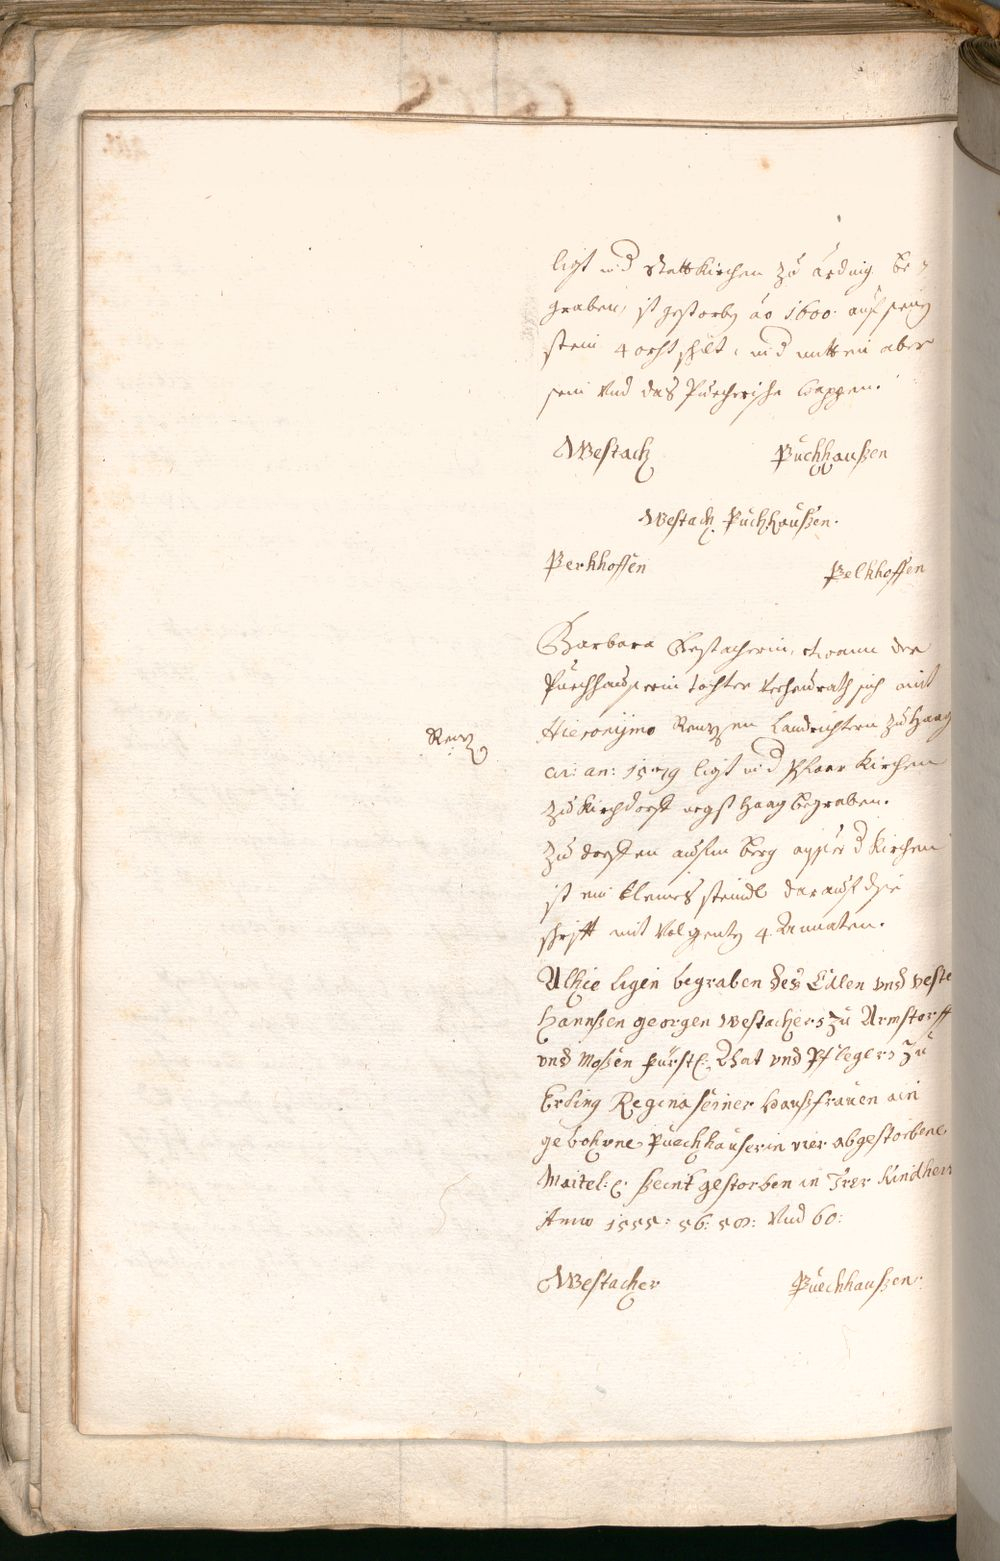 ligt in d Stattkirchen zu ärding be
graben, ist gestorben ao 1600. auf seinen
stein 4 orht schilt, in d mitten aber
sein Vnd das Puecherische wappen.
Westach Puchhaußen
Westach Puchhaußen.
Perkhoffen Pelkhoffen
Barbara Westacherin, der
Puechhauserin tochter verheurath sich mit
Hieronijmo Renzen Landrichtern zu Haag
Renz
an: 1579 ligt in d Pfarr Kirchen
zu Kirchdorff negst Haag begraben.
Zu dorffen aufm berg d Kirchen
ist ein kleines steindl darauf dise
schrifft mit Volgenten 4 Annaten.
Alhie ligen begraben des Edlen vnd veste
Hannßen georgen Westachers zu Armstorff
vnd Moßen fürstl: Rhat vnd Pflegers zu
Erding Regina seiner Haußfrauen ain
gebohrne Puechhauserin vier abgestorbene
Maitel: seint gestorben in Irer Kindheit
Anno 1555: 56: 58: Vnd 60:
Westacher Puechhaußen.